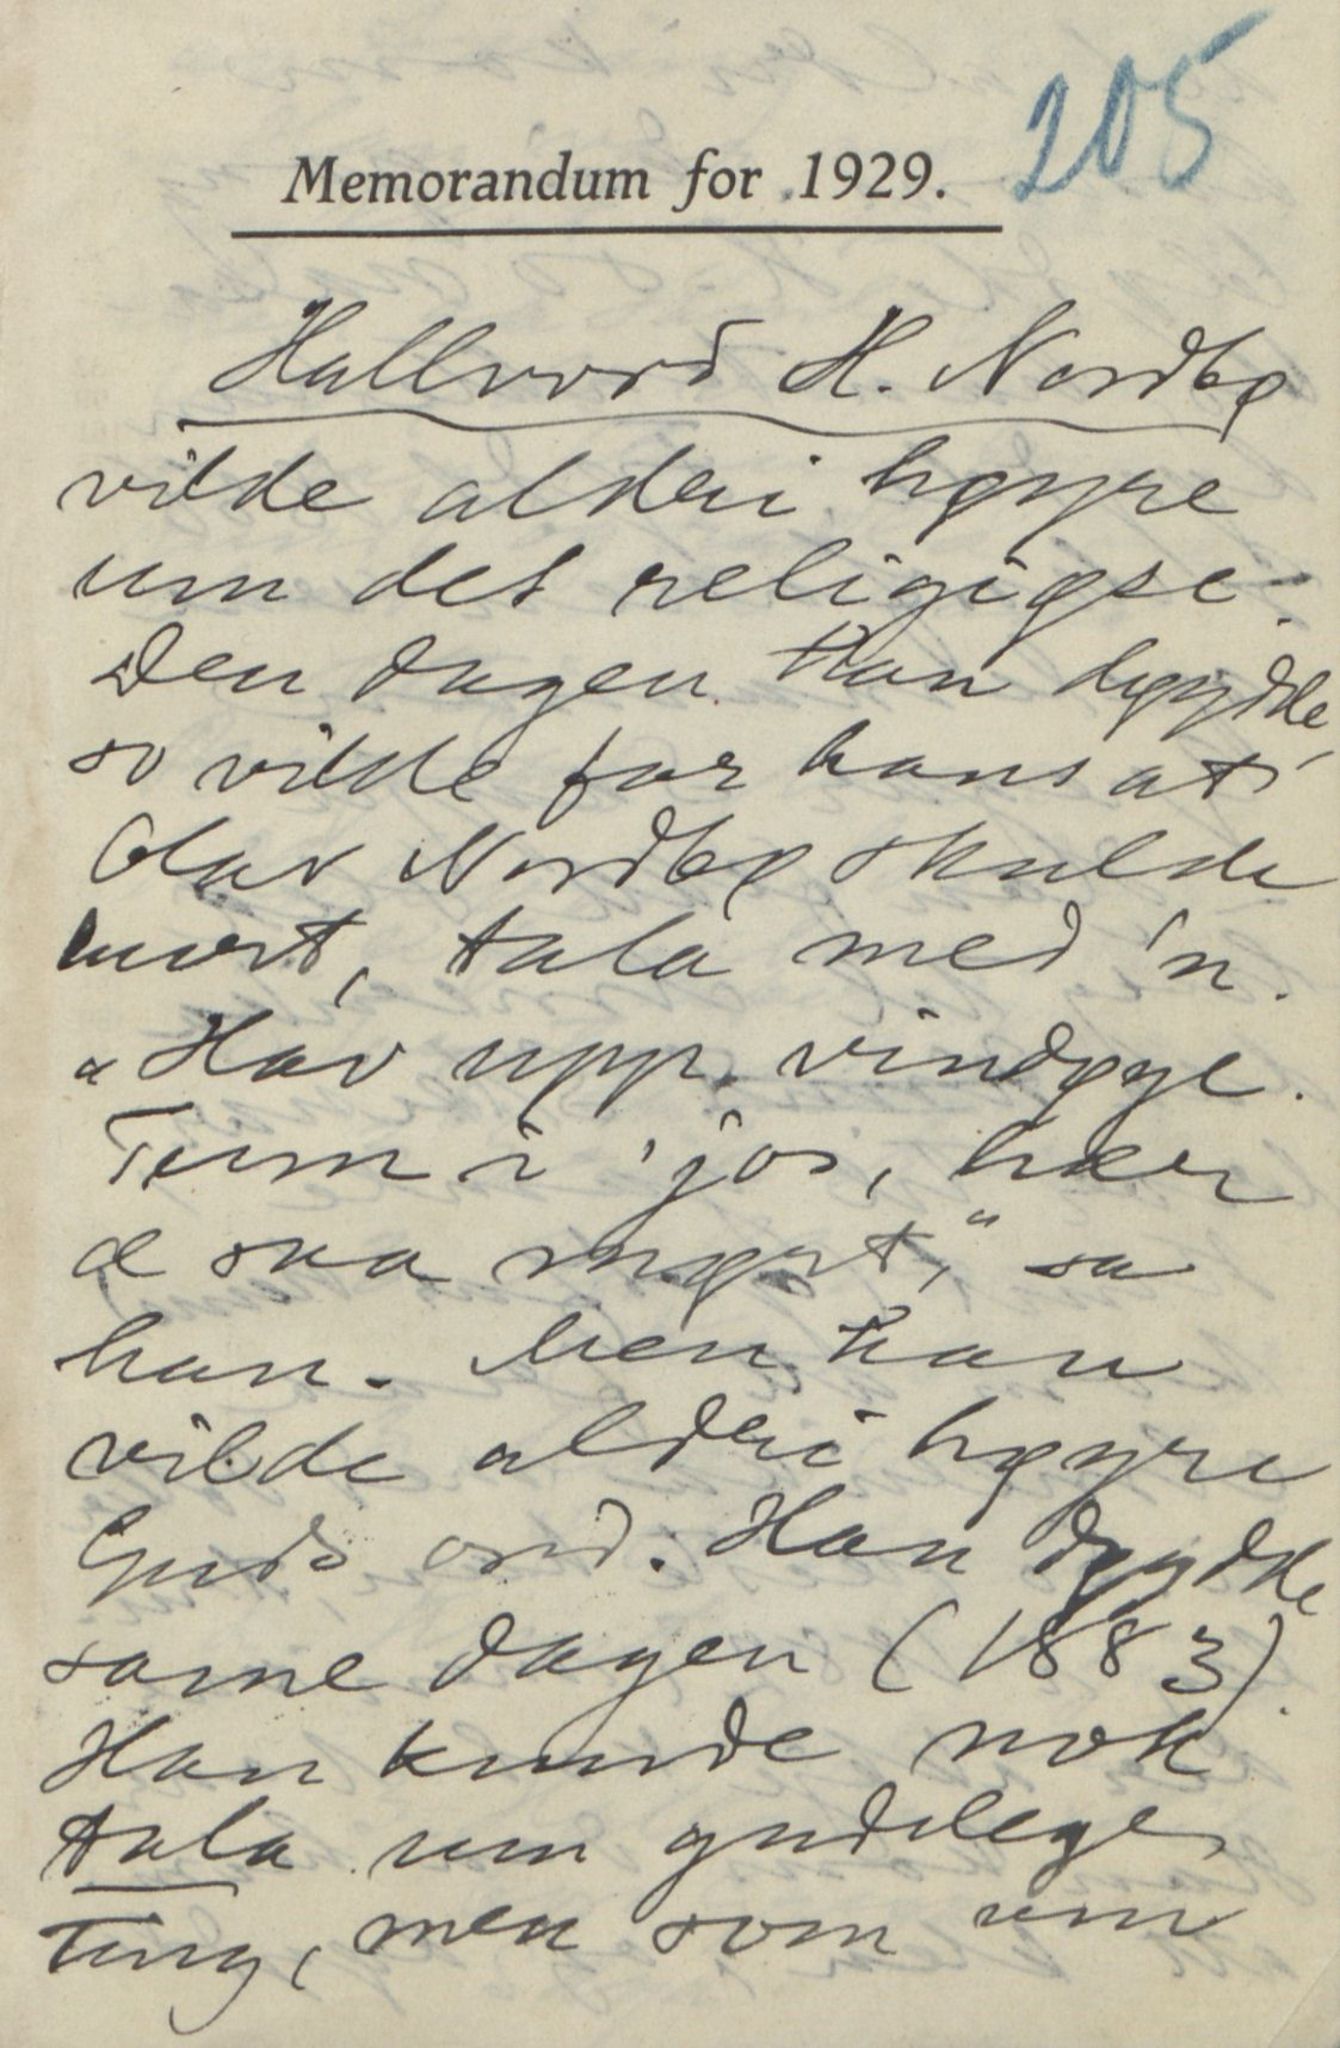 205
Memorandum for 1929.
Hallvord H. Nordbø
vilde aldri høyre
um det religiøse.
Den dagen han døydde,
so vilde far hans at
Olav Nordbø skulde
tala med 'n.
"Hav upp vindøye.
Kom i jos, her
æ saa myrt," sa
han. Men han
vilde aldri høyre
Guds ord. Han døydde
same dagen (1883).
Han kunde nok
tala um gudelege
ting, men som um